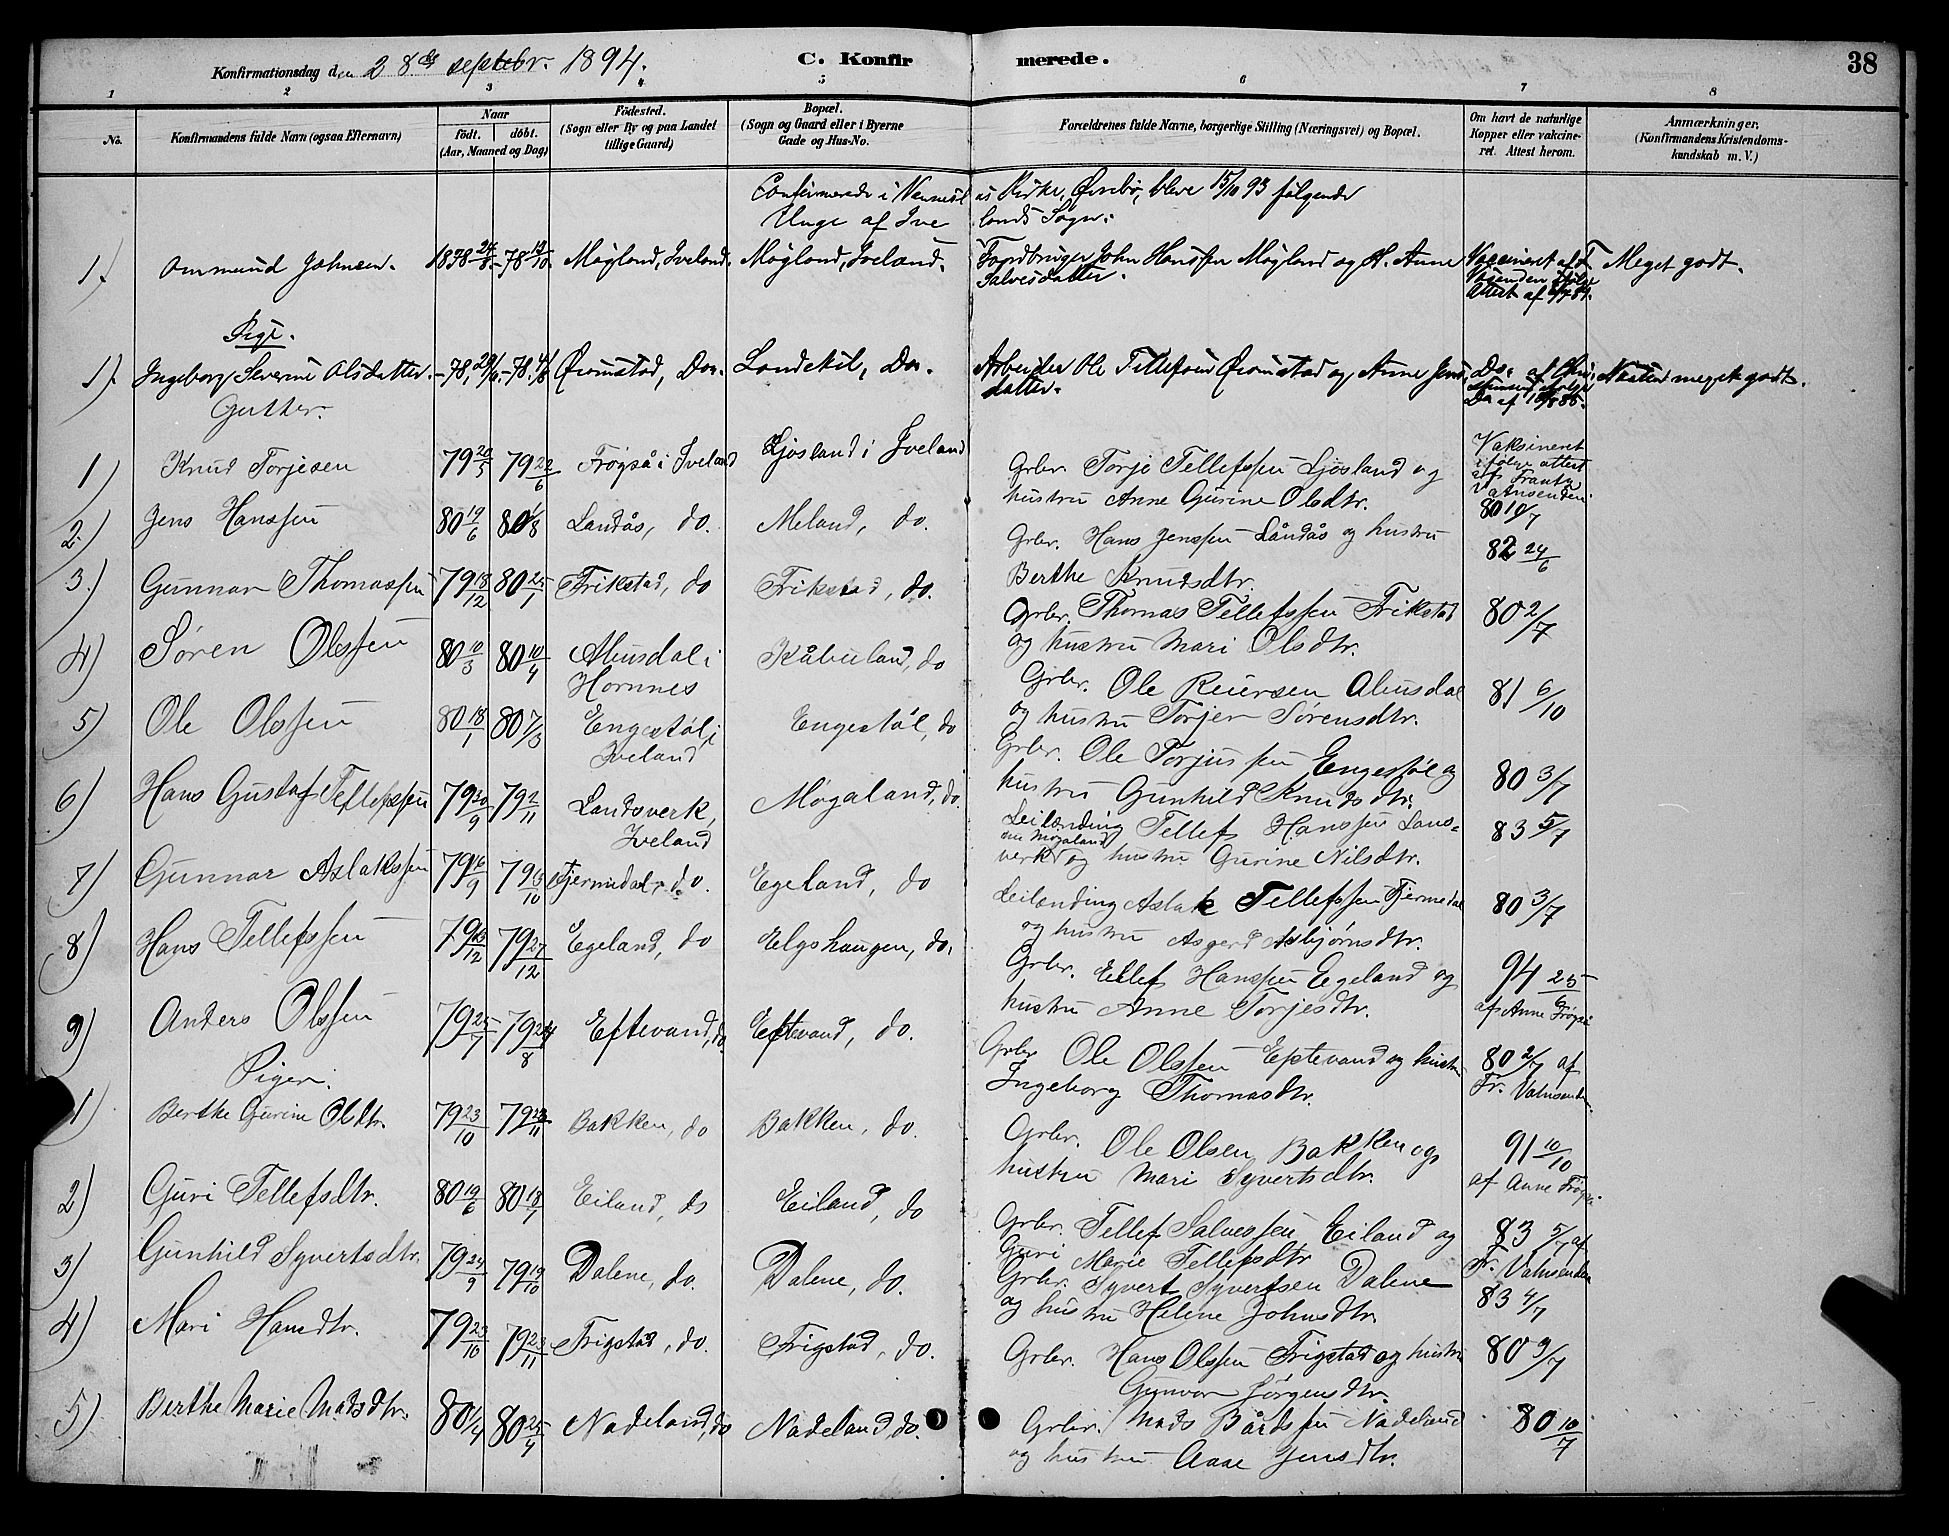 Konfirmationsdag den 28de septebr. 1894.
C. Konfirmerede.
38
1 2 3 4 5 6 7 8
No.
Konfirmandens fulde Navn (ogsaa Efternavn)
Naar
født. døbt.
(Aar, Maaned og Dag)
Födested.
(Sogn eller By og paa Landet
tillige Gaard)
Bopæl.
(Sogn og Gaard eller i Byerne
Gade og Hus-No.
Forældrenes fulde Navne, borgerlige Stilling (Næringsvei) og Bopæl.
Om havt de naturlige
Kopper eller vakcine-
ret. Attest herom.
Anmærkninger,
(Konfirmandens Kristendoms-
kundskab m. V.)
Confirmerede i Vennesl
a's Kirke, Øvrebø, bleve 15/10 93 følgende
Unge af Ive
lands Sogn:
1.) Ommund Johnsen. 1878 24/8. -78 13/10. Mögland, Iveland. Mögland, Iveland. Jordbruger John Hansen Mögland og H. Anne
Salvesdatter. Vaccineret af F.
Attest af
Meget godt.
Pige.
1). Ingeborg Severine Olsdatter. -78, -78. 4/8 Do. Landekil, Do. Arbeider Ole Tellefsen og Anne Jens
datter. Do. af
Do af
Næsten meget godt.
Gutter.
1) Knud Torjesen 79 20/5 79 22/6 Frøyså i Iveland Ljosland i Iveland
Grbr. Torje Tellefssen Ljosland og
hustru Anne Gurine Olsdtr.
Vaksineret
ifølge attest
af Frants
Vatnsenden
80 10/7
2.) Jens Hanssen 80 19/6 80 1/8 Landås, do. Meland, do.
Grbr. Hans Jenssen Låndås og hustru
Berthe Knudsdtr.
82 24/6
3.) Gunnar Thomassen 79 18/12 80 25/1 Frikstad, do Frikstad, do.
Grbr. Thomas Tellefssen Frikstad
og hustru Mari Olsdtr.
80 2/7
4) Søren Olssen 80 10/3 80 10/4 Abusdal i
Hornnes
Kåbuland, do
Grbr. Ole Reiersen Abusdal
og hustru Torjer Sørensdtr.
81 6/10
5) Ole Olssen 80 18/1 80 7/3 Engestøl i
Iveland
Engestøl, do
Grbr. Ole Torjussen Engestøl og
hustru Gunhild Knudsdtr.
80 3/7
6) Hans Gustaf Tellefssen 79 30/9 79 2/11 Landsverk,
Iveland
Møgaland, do.
Leilænding Tellef Hanssen Lans=
nu Møgaland
verk og hustru Gurine Nilsdtr.
83 5/7
7) Gunnar Aslakssen 79 16/9 79 Fjermedal, do. Egeland, do
Leilænding Aslak Tellefssen Fjermedal
og hustru Asgerd Asbjørnsdtr.
80 3/7
8) Hans Tellefssen 79 79 27/12 Egeland, do Elgshaugen, do.
Grbr. Ellef Hanssen Egeland og
hustru Anne Torjesdtr.
94 25/6
af Anne Frøyså
9) Anders Olssen 79 25/7 79 24/8 Eftevand, do. Eftevand, do.
Grbr. Ole Olssen Eptevand og hustru
Ingeborg Thomasdtr.
80 2/7 af
Fr. Vatnsenden
Piger.
1) Berthe Gurine Olsdtr. 79 23/10 79 23/11 Bakken, do Bakken, do.
Grbr. Ole Olsen Bakken og
hustru Mari Syvertsdtr.
91 10/10
af Anne Frøyså
2) Guri Tellefsdtr. 80 19/6 80 18/7 Eiland, do Eiland, do
Grbr. Tellef Salvessen Eiland og
Guri Marie Tellefsdtr
83 5/7 af
Fr. Vatnsenden
3) Gunhild Syvertsdtr. 79 24/9 79 19/10 Dalene, do. Dalene, do.
Grbr. Syvert Syvertsen Dalene
og hustru Helene Johnsdtr.
83 4/7
4) Mari Hansdtr. 79 23/10 79 23/11 Frigstad, do. Frigstad, do.
Grbr. Hans Olssen Frigstad og hustru
Gunvor Jørgensdtr.
80 3/7
5) Berthe Marie Madsdtr. 80 1/4 80 25/4 Nadeland, do Nadeland, do.
Grbr. Mads Bårdssen Nadeland
og hustru Aase Jensdtr.
80 10/7